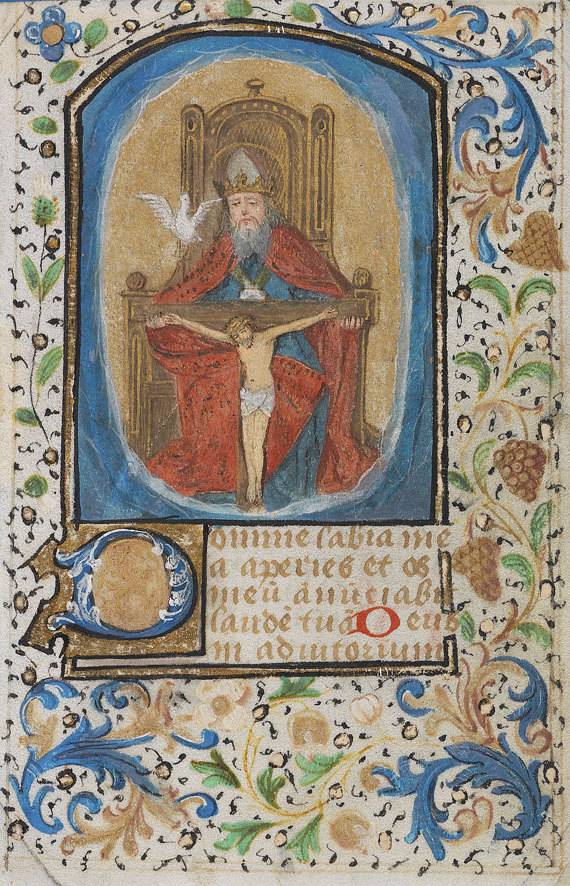 Domine labia me
a aperies et os
meū anūciabit
laudē tuā Deus
in adiutorium